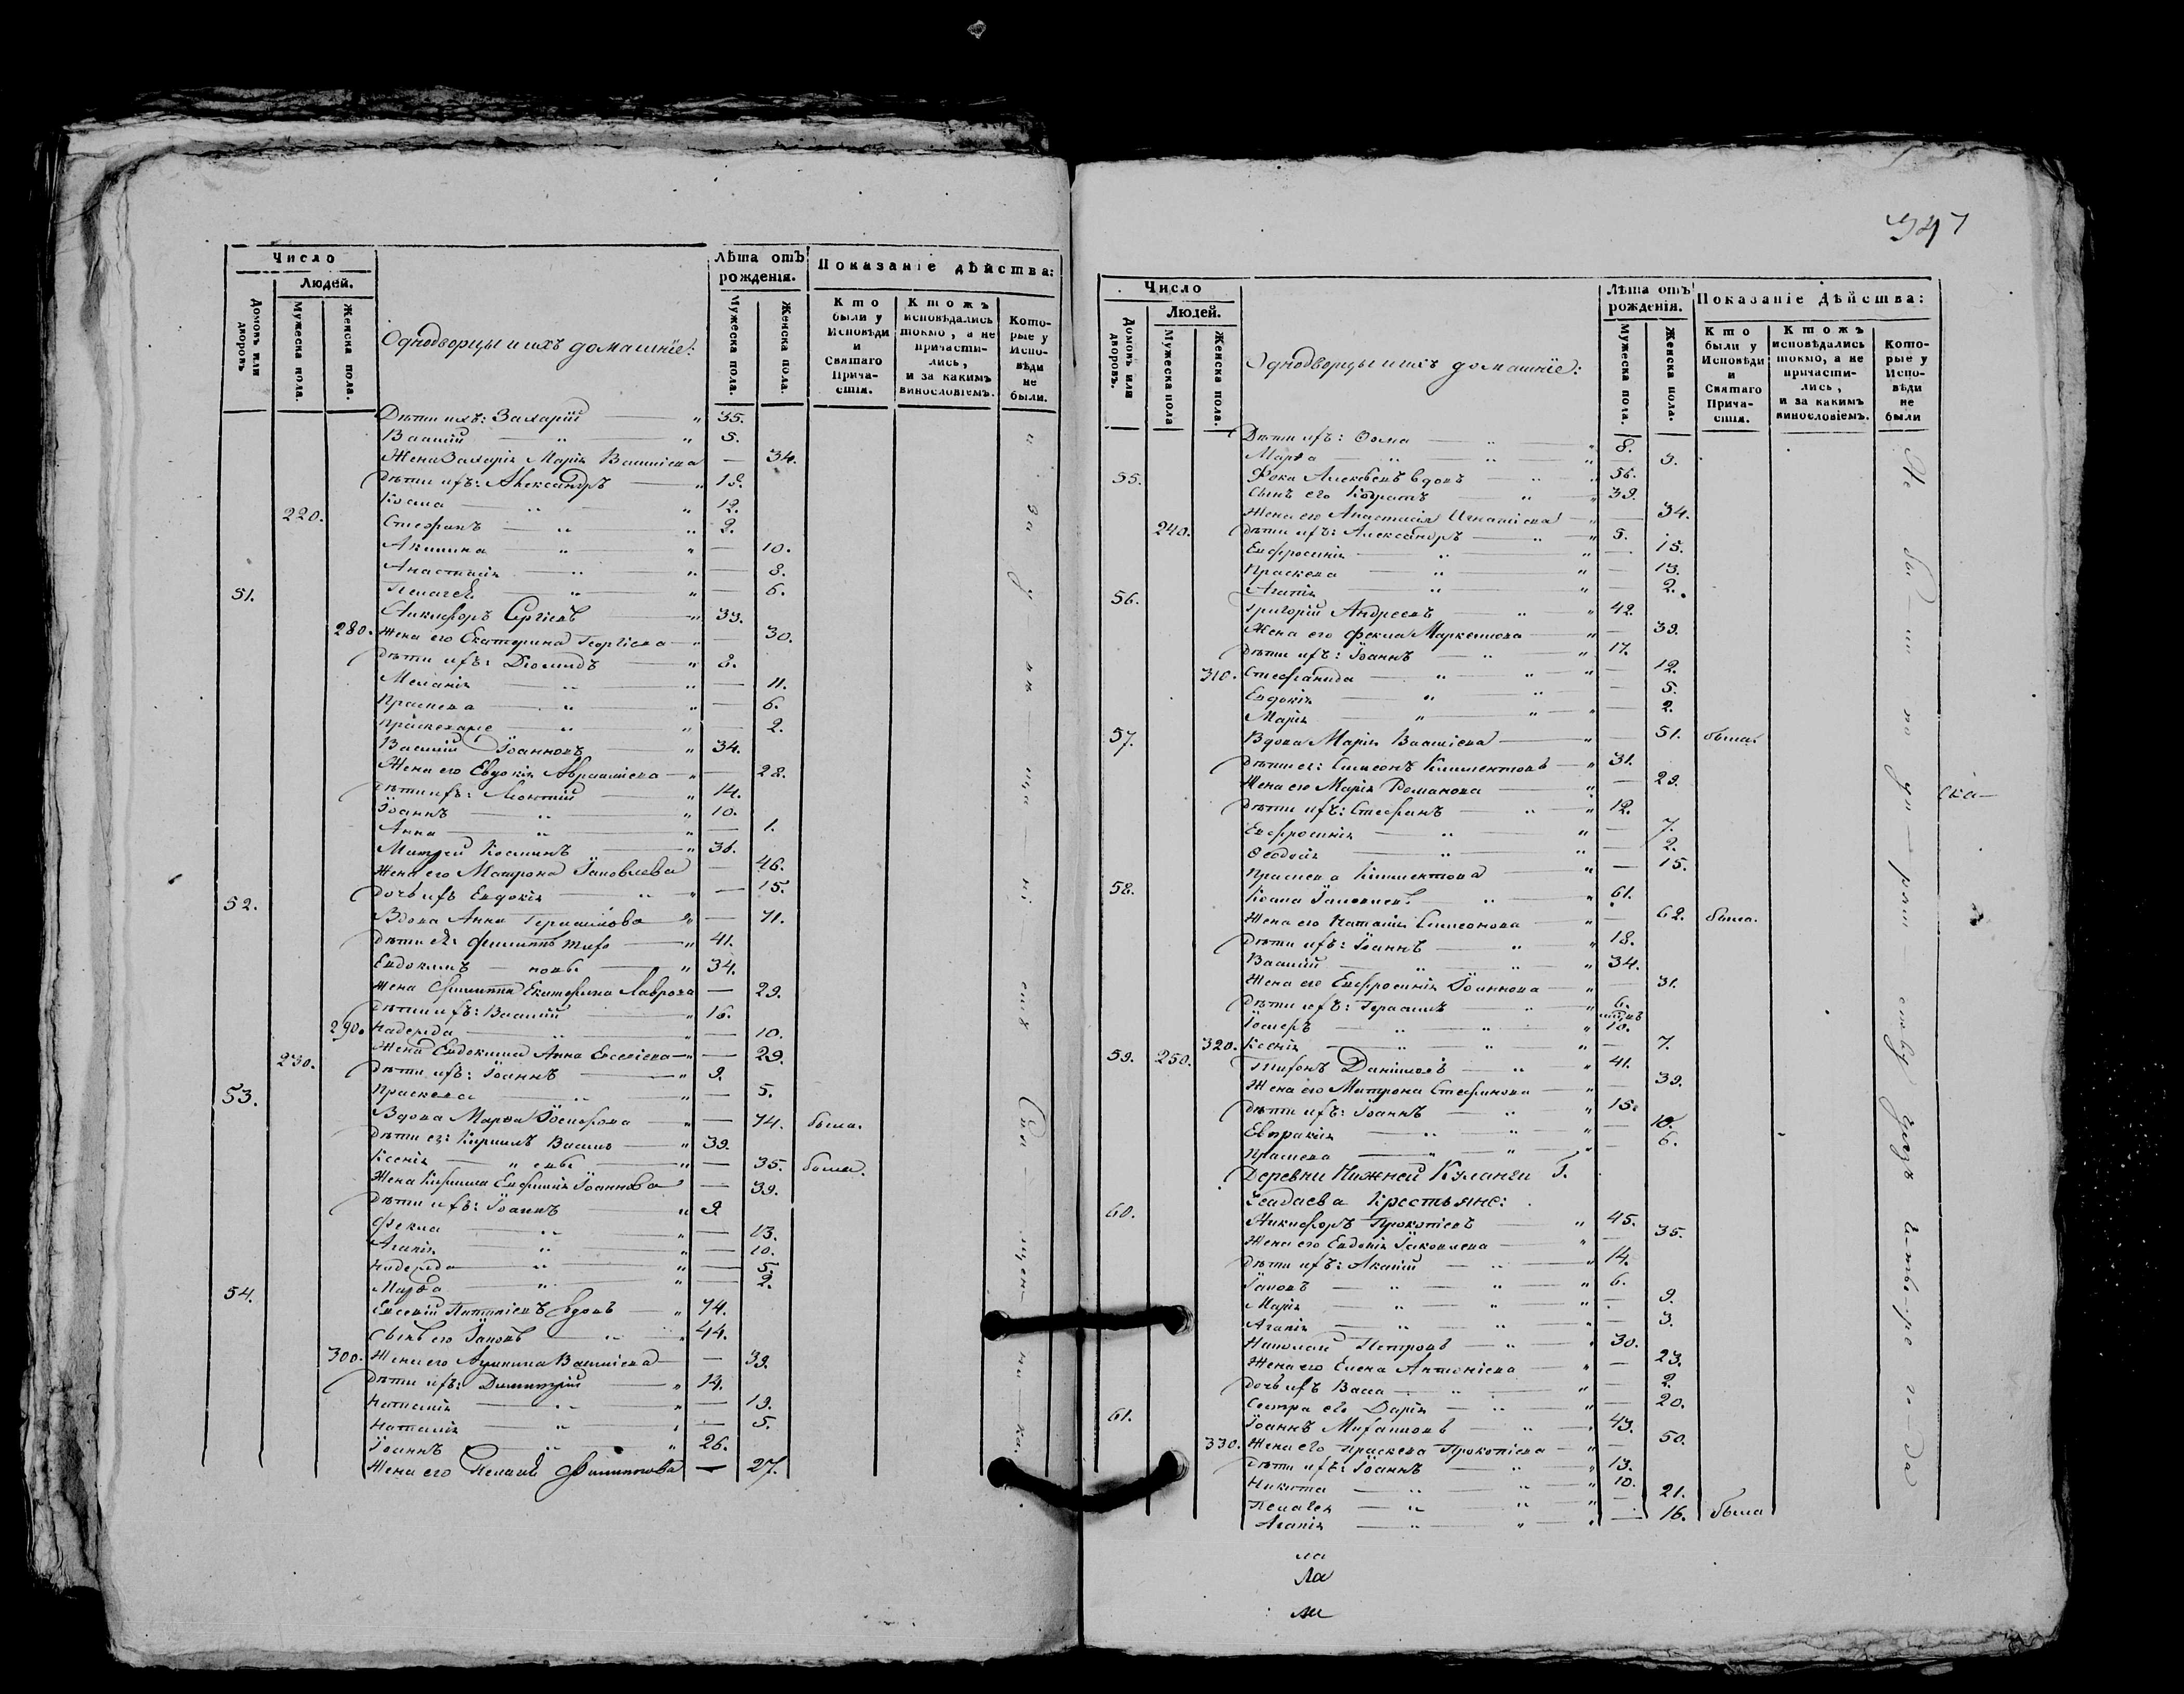 Число
Людей.
Домовъ или дворовъ
Мужеска пола.
Женска пола.
Однодворцы и ихъ домашніе:
Лѣта отъ рожденія.
Мужеска пола.
Женска пола.
Показаніе дѣйства:
Кто были у Исповѣди и Святаго Прича-стія.
Ктожъ исповѣдались токмо, а не причасти-лись, и за какимъ винословіемъ.
Кото-рые у Испо-вѣди не были.
Дѣти ихъ: Захарій " 35.
Василій " " 5.
Жена Захарія Марія Василіева — 34.
Дѣти ихъ: Александръ " 18.
Косма " " 12.
220. Стефанъ " " 2.
Акилина " " — 10.
Анастасія " " — 8.
Пелагея " " — 6.
51. Никифоръ Сергіевъ " 33.
280. Жена его Екатерина Георгіева " — 30.
Дѣти ихъ: Діомидъ " 8.
Меланія " " — 11.
Праскева " " — 6.
Праскева же " " — 2.
Василій Іоанновъ " 34.
Жена его Евдокія Авраамiева " — 28.
Дѣти ихъ: Леонтій " 14.
Іоаннъ " " 10.
Анна " " — 1.
Матфей Косминъ " 36.
Жена его Матрона Іаковлева — 46.
Дочь ихъ Евдокія " " — 15.
52. Вдова Анна Герасимова " — 71.
Дѣти ея: Филиппъ " 41.
Евдокимъ " 34.
Жена Филиппа Екатерина Лаврова — 29.
Дѣти ихъ: Василій " 16.
290. Надежда " " — 10.
Жена Евдокима Анна Евсевіева " — 29.
230. Дѣти ихъ: Іоаннъ " 9.
Праскева " " — 5.
53. Вдова Марѳа Іосифова " — 74. была.
Дѣти ея: Кирилъ Василь " 39.
Ксенія " евы " — 35. была.
Жена Кирила Евфимія Іоаннова — 39.
Дѣти ихъ: Іоаннъ " 9.
Фекла " " — 13.
Агапія " " — 10.
Надежда " " — 5.
Марѳа " " — 2.
54. Евсевій вдовъ " 74.
Сынъ его Іаковъ " " 44.
300. Жена его Акилина Василіева — 39.
Дѣти ихъ: Димитрій " 14.
Наталія " " — 19.
Наталія " " — 5.
Іоаннъ " " 26.
Жена его Филиппова — 27.
347
Число
Людей.
Домовъ или дворовъ.
Мужеска пола
Женска пола.
Однодворцы и ихъ домашніе:
Лѣта отъ рожденія.
Мужеска пола.
Женска пола.
Показаніе Дѣйства:
Кто были у Исповѣди и Святаго Прича-стія.
Ктожъ исповѣдались токмо, а не причасти-лись, и за какимъ винословіемъ.
Кото-рые у Испо-вѣди не были
Дѣти ихъ: Ѳома " " 8.
Марѳа " " " — 3.
55. Фока Алексѣевъ вдовъ " " 56.
Сынъ его " " 39.
Жена его Анастасія Игнатіева " — 34.
240. Дѣти ихъ: Александръ " " 5.
Евфросинія " " — 15.
Праскева " " — 13.
Агапія " " — 2.
56. Григорій Андреевъ " " 42.
Жена его Фекла Маркеллова " — 39.
Дѣти ихъ: Іоаннъ " " 17.
310. Стефанида " " " — 12.
Евдокія " " — 5.
Марія " " " — 2.
57. Вдова Марія Василіева " — 51. была.
Дѣти ея: Симеонъ Климентовъ " 31.
Жена его Марія Романова " — 29.
Дѣти ихъ: Стефанъ " " 12.
Евфросинія " " — 7.
Ѳеодосія " " — 2.
Праскева Климентова " — 15.
58. Косма Іаковлевъ " " 61.
Жена его Наталія Симеонова " — 62. была.
Дѣти ихъ: Іоаннъ " " 18.
Василій " " " 34.
Жена его Евфросинія Іоаннова " — 31.
Дѣти ихъ: Герасимъ " " 6.
Іосифъ " " " 10.
320. Ксенія " " " — 7.
59. 250. Тихонъ Даніиловъ " " 41.
Жена его Матрона Стефанова " — 39.
Дѣти ихъ: Іоаннъ " " 15.
Евпраксія " " " — 10.
Праскева " " " — 6.
Деревни Нижней Куланги Г.
крестьяне:
60. Никифоръ Прокопіевъ " 45.
Жена его Евдокія Іаковлева " — 35.
Дѣти ихъ: " " 14.
Іаковъ " " " 6.
Марія " " " — 9.
Агапія " " " — 3.
Николай Петровъ " " 30.
Жена его Елена Антоніева " — 23.
Дочь ихъ Васса " " — 2.
Сестра его Дарія " " — 20.
61. Іоаннъ Михаиловъ " " 43.
330. Жена его Праскева Прокопіева " — 50.
Дѣти ихъ: Іоаннъ " " 13.
Никита " " " 10.
Пелагея " " " — 21.
Агапія " " " — 16. была
ла
ли